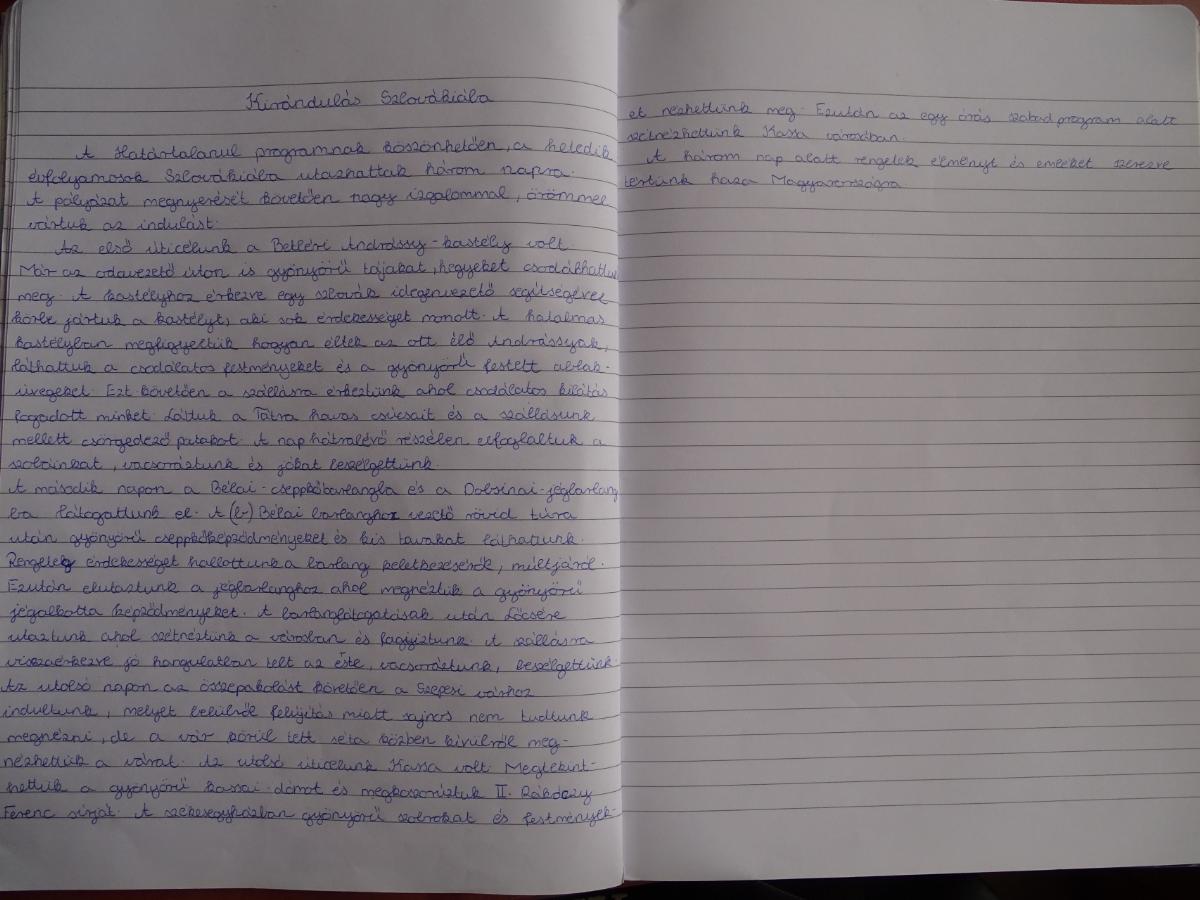 Kirándulás Szlovákiába
A Határtalanul programnak köszönhetően, a hetedik
évfolyamosok Szlovákiába utazhattak három napra.
A pályázat megnyerését követően nagy izgalommal, örömmel
vártuk az indulást.
Az első úticélunk a Betléri Andrássy-kastély volt.
Már az odavezető úton is gyönyörű tájakat, hegyeket csodálhattunk
meg. A kastélyhoz érkezve egy szlovák idegenvezető segítségével
körbe jártuk a kastélyt, aki sok érdekességet mondott. A hatalmas
kastélyban megfigyeltük hogyan éltek az ott élő Andrássyak,
láthattuk a csodálatos festményeket és a gyönyörű festett ablak-
üvegeket. Ezt követően a szállásra érkeztünk ahol csodálatos kilátás
fogadott minket. Láttuk a Tátra havas csúcsait és a szállásunk
mellett csörgedező patakot. A nap hátralévő részében elfoglaltuk a
szobáinkat, vacsoráztunk és jókat beszélgettünk.
A második napon a Bélai-cseppkőbarlangba és a Dobsinai-jégbarlang
ba látogattunk el. A (b) Bélai barlanghoz vezető rövid túra
után gyönyörű cseppkőképződményeket és kis tavakat láthattunk.
Rengeteg érdekességet hallottunk a barlang keletkezéséről, múltjáról.
Ezután elutaztunk a jégbarlanghoz ahol megnéztük a gyönyörű
jégalkotta képződményeket. A barlanglátogatások után Lőcsére
utaztunk ahol szétnéztünk a városban és fagyiztunk. A szállásra
visszaérkezve jó hangulatban telt az este, vacsoráztunk, beszélgettünk.
Az utolsó napon az összepakolást követően a Szepesi várhoz
indultunk, melyet belülről felújítás miatt sajnos nem tudtunk
megnézni, de a vár körül tett séta közben kívülről meg-
nézhettük a várat. Az utolsó úticélunk Kassa volt. Megtekint-
hettük a gyönyörű kassai-dómot és megkoszorúztuk II. Rákóczy
Ferenc sírját. A székesegyházban gyönyörű szobrokat és festmények-
et nézhettünk meg. Ezután az egy órás szabad program alatt
szétnézhettünk Kassa városában.
A három nap alatt rengetek élményt és emléket szerezve
tértünk haza Magyarországra.